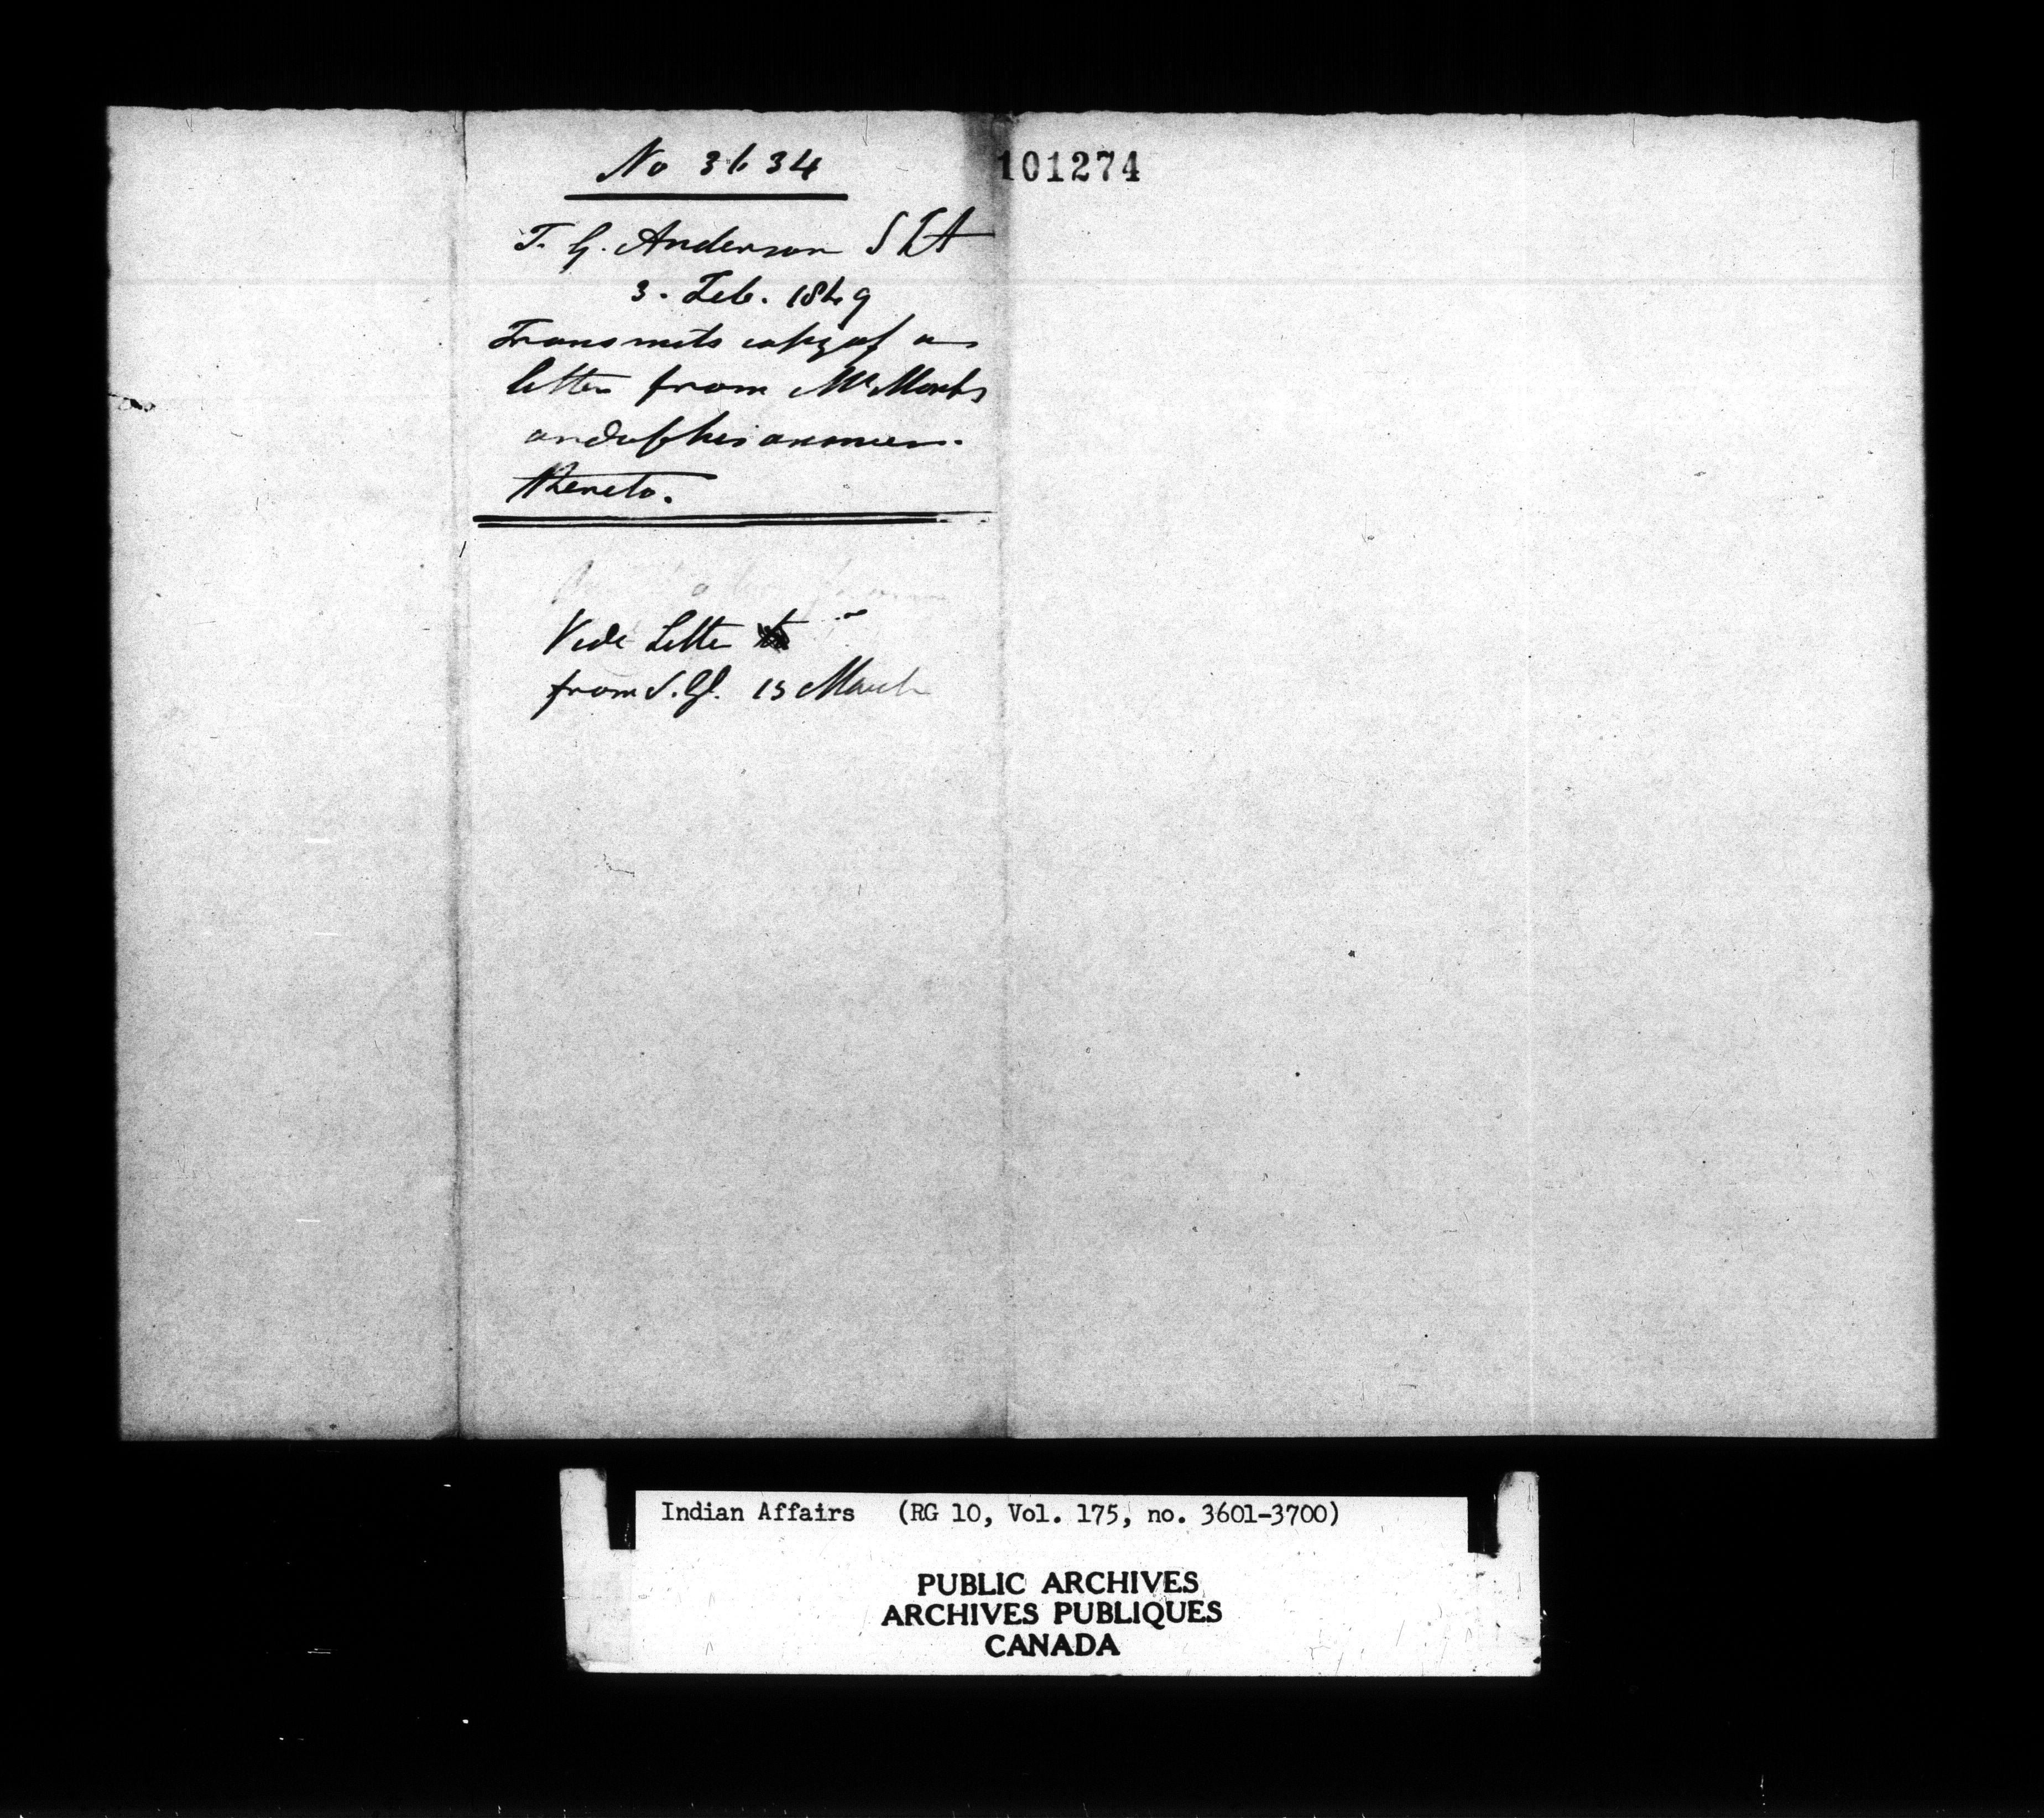 No 3634
101274
T. G. Anderson S I A
3. Feb. 1849
Transmits copy of a
letter from Mr
and of his answer
thereto.
Vide Letter
from S. Gl. 13 March
Indian Affairs (RG 10, Vol. 175, no. 3601-3700)
PUBLIC ARCHIVES
ARCHIVES PUBLIQUES
CANADA